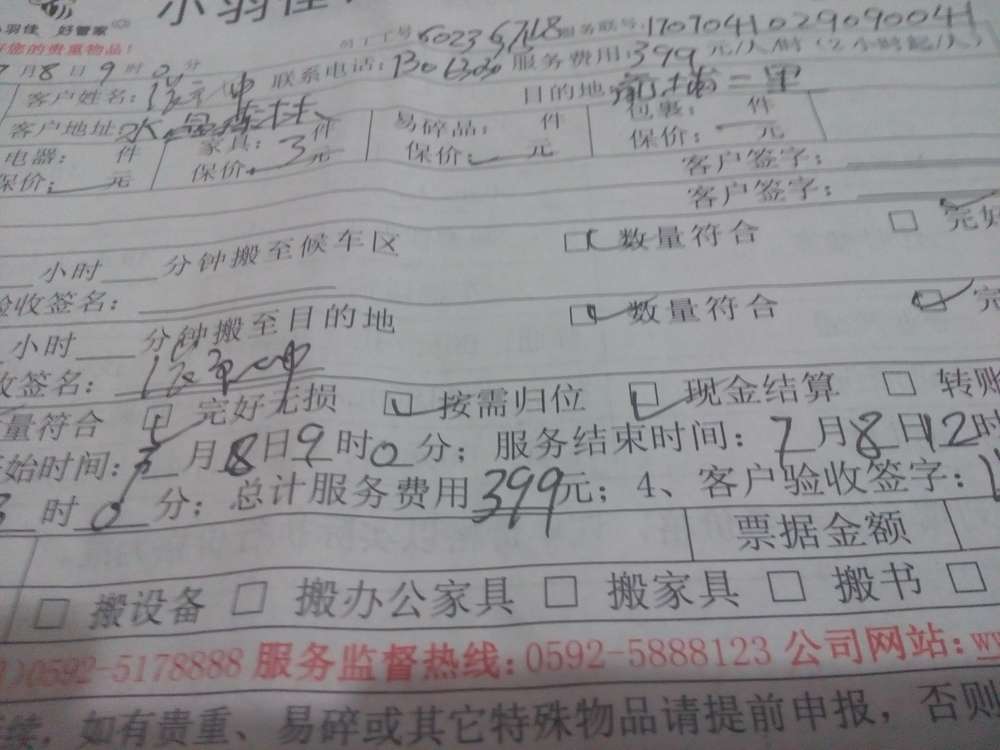 小羽佳
小羽佳 好管家
好您的贵重物品！
服务费用：399 元/人/时（2小时起/人）
7月8日9时0分
客户姓名： 联系电话：
目的地：
客户地址：
电器： 件 家具： 件 易碎品： 件 包裹： 件
保价： 元 保价：3元 保价： 元 保价： 元
客户签字：
客户签字：
小时 分钟搬至候车区 数量符合 完好
验收签名：
小时 分钟搬至目的地 数量符合 完
收签名：
量符合 完好无损 按需归位 现金结算 转账
始时间： 月8日9时0分；服务结束时间：7月8日12时
3时0分；总计服务费用399元；4、客户验收签字：
票据金额
搬设备 搬办公家具 搬家具 搬书
0592-5178888 服务监督热线：0592-5888123 公司网站：
如有贵重、易碎或其它特殊物品请提前申报，否则